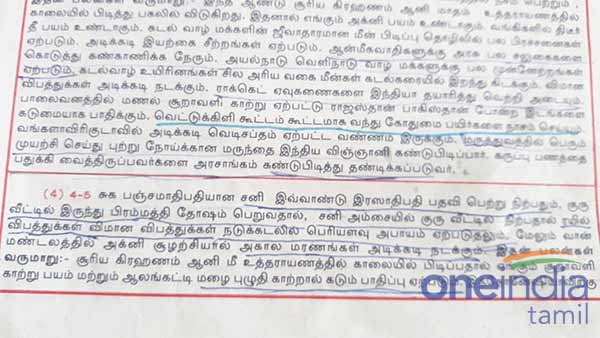 இதன் பலன்கள் வருமாறு:- இந்த ஆண்டு சூரிய கிரஹணம் ஆனி மாதம் உத்தராயணத்தில்
காலையில் பிடித்து பகலில் விடுகிறது. இதனால் எங்கும் அக்னி பயம் உண்டாகும். வங்கிகளில் திடீர்
தீ பயம் உண்டாகும். கடல் வாழ் மக்களின் ஜீவாதாரமான மீன் பிடிப்பு தொழிலில் பல பிரச்சனைகள்
ஏற்படும். அடிக்கடி இயற்கை சீற்றங்கள் ஏற்படும். ஆன்மீகவாதிகளுக்கு அரசு பல சலுகைகளை
கொடுத்து கண்காணிக்க நேரும். அயல்நாடு வெளிநாடு வாழ் மக்களுக்கு பல முன்னேற்றங்கள்
ஏற்படும். கடல்வாழ் உயிரினங்கள் சில அரிய வகை மீன்கள் கடல்கரையில் இறந்து கிடக்கும். விமான
விபத்துக்கள் அடிக்கடி நடக்கும். ராக்கெட் ஏவுகணைகளை இந்தியா தயாரித்து வெற்றி அடையும்.
பாலைவனத்தில் மணல் சூறாவளி காற்று ஏற்பட்டு ராஜஸ்தான் பாகிஸ்தான் போன்ற இடங்களை
கடுமையாக பாதிக்கும். வெட்டுக்கிளி கூட்டம் கூட்டமாக வந்து கோதுமை பயிர்களை நாசம் செய்யும்
வங்காளவிரிகுடாவில் அடிக்கடி வெடிசப்தம் ஏற்பட்ட வண்ணம் இருக்கும். மருத்துவத்தில் பெரும்
முயற்சி செய்து புற்று நோய்க்கான மருந்தை இந்திய விஞ்ஞானி கண்டுபிடிப்பார். கருப்பு பணத்தை
பதுக்கி வைத்திருப்பவர்களை அரசாங்கம் கண்டுபிடித்து தண்டிக்கப்படுவர்.
(4) 4-5 சுக பஞ்சமாதிபதியான சனி இவ்வாண்டு இரஸாதிபதி பதவி பெற்று நிற்பதும், குரு
வீட்டில் இருந்து பிரம்மத்தி தோஷம் பெறுவதால், சனி அம்சையில் குரு வீட்டில் நிற்பதால் ரயில்
விபத்துக்கள் விமான விபத்துக்கள் நடுக்கடலில் பெரியளவு அபாயம் ஏற்படுத்தலும், மேலும் வான்
மண்டலத்தில் அக்னி சூழற்சியால் அகால மரணங்கள் அடிக்கடி நடக்கும். இதன் பலன்கள்
வருமாறு:- சூரிய கிரஹணம் ஆனி மீ உத்தராயணத்தில் காலையில் பிடிப்பதால் எங்கும் சூறாவளி
காற்று பயம் மற்றும் ஆலங்கட்டி மழை புழுதி காற்றால் கடும் பாதிப்பு
oneindia
tamil